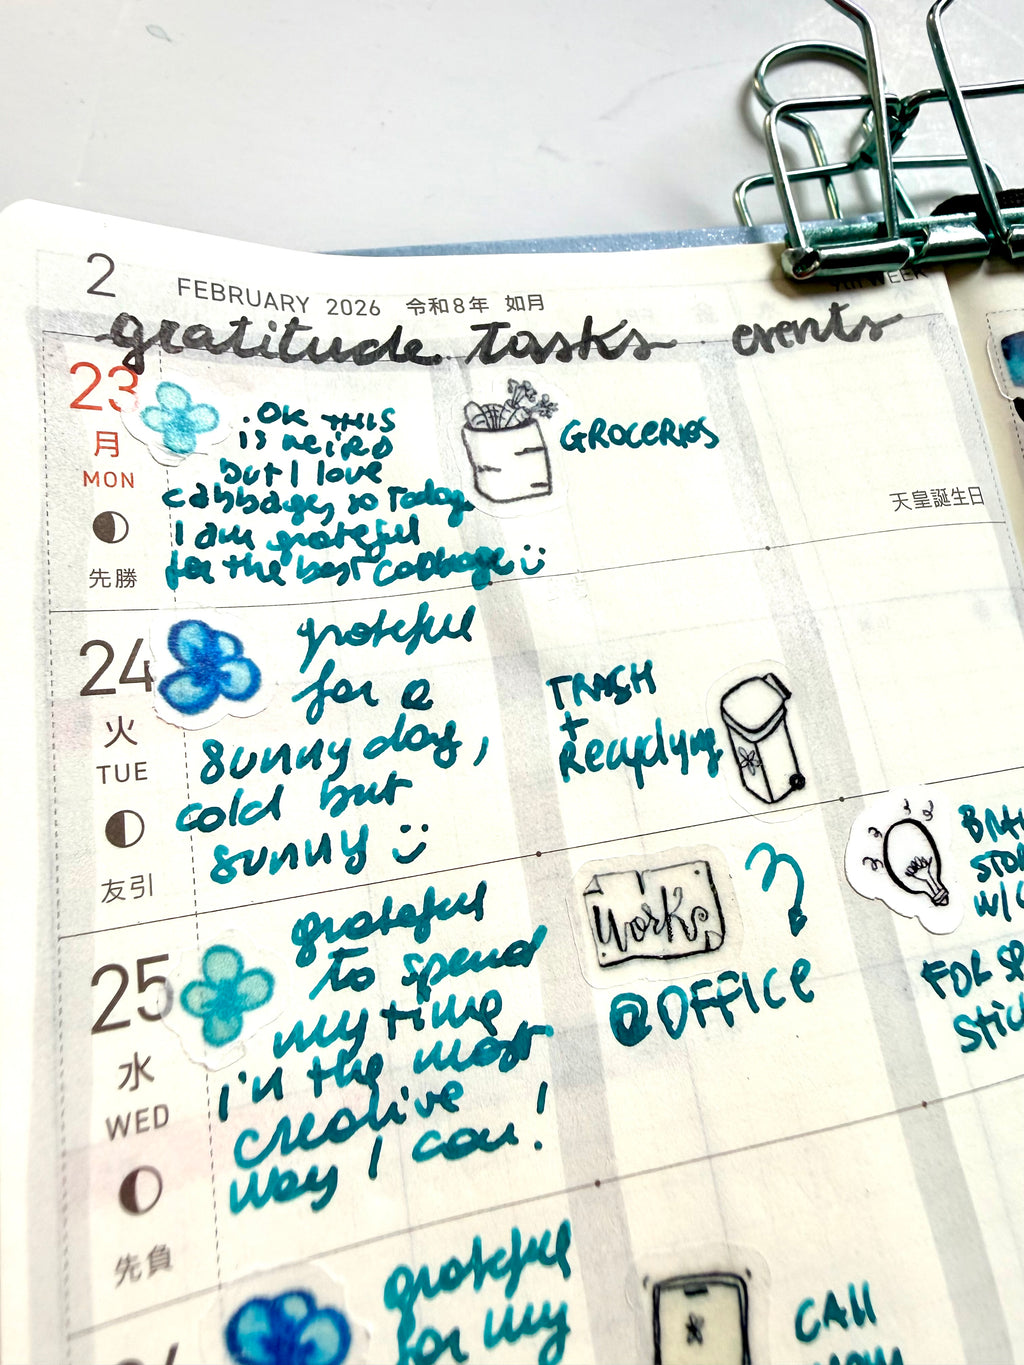 2 FEBRUARY 2026 令和8年 如月
9th WEEK
gratitude tasks events
23
月
MON
先勝
. OK THIS
is weird
but I love
cabbages, so Today
I am grateful
for the best cabbage ツ
GROCERIES
天皇誕生日
24
火
TUE
友引
grateful
for a
sunny day,
cold but
sunny ツ
TRASH
+
Recycling
25
水
WED
先負
grateful
to spend
my time
i'n the most
creative
way I can!
Works
?
@OFFICE
W/
FOR
26
grateful
for my
CALL
MOM